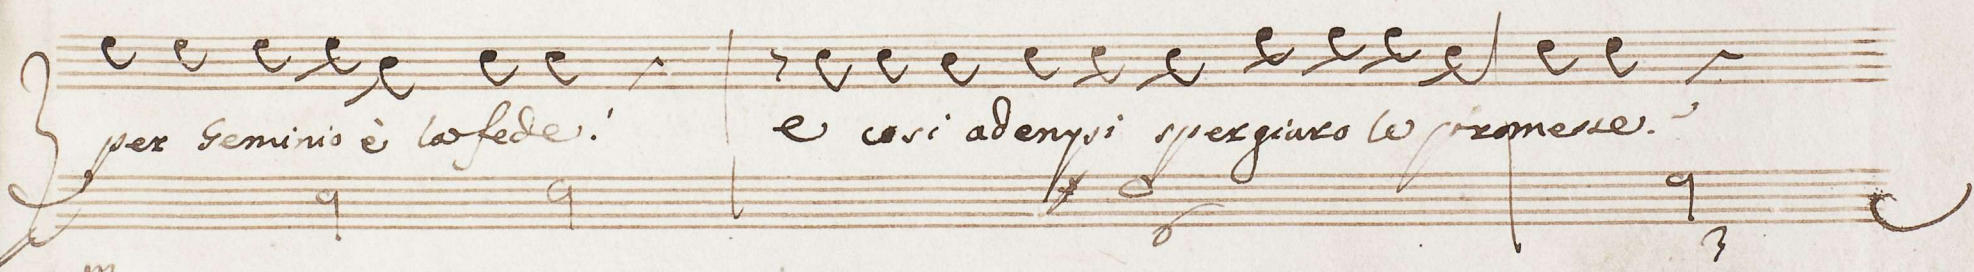 per Geminio è la fede.! e cosi adempsi spergiuro le promesse.?
6
3